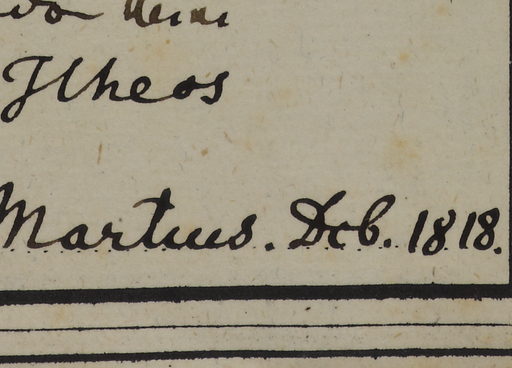 Ilheos
Martius. Dcb. 1818.